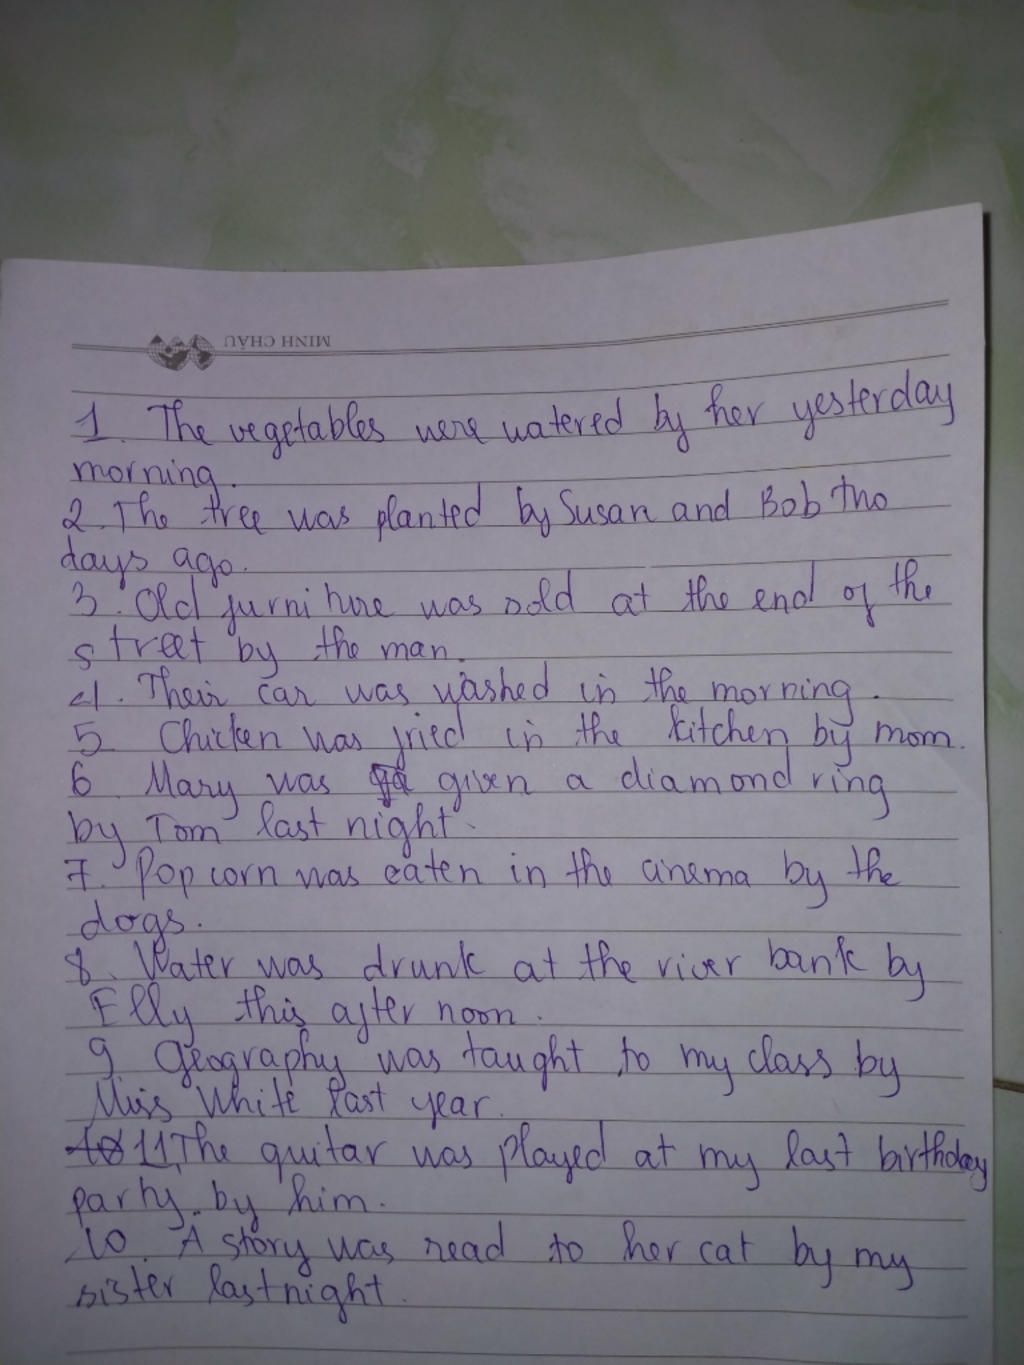 MINH CHÂU
1. The vegetables were watered by her yesterday
morning.
2. The tree was planted by Susan and Bob two
days ago.
3. Old furniture was sold at the end of the
street by the man.
4. Their car was washed in the morning.
5 Chicken was fried in the kitchen by mom.
6 Mary was given a diamond ring
by Tom last night.
7. Popcorn was eaten in the cinema by the
dogs.
8. Water was drunk at the river bank by
Elly this afternoon.
9 Geography was taught to my class by
Miss White last year.
10 11, The guitar was played at my last birthday
party by him.
10. A story was read to her cat by my
sister last night.